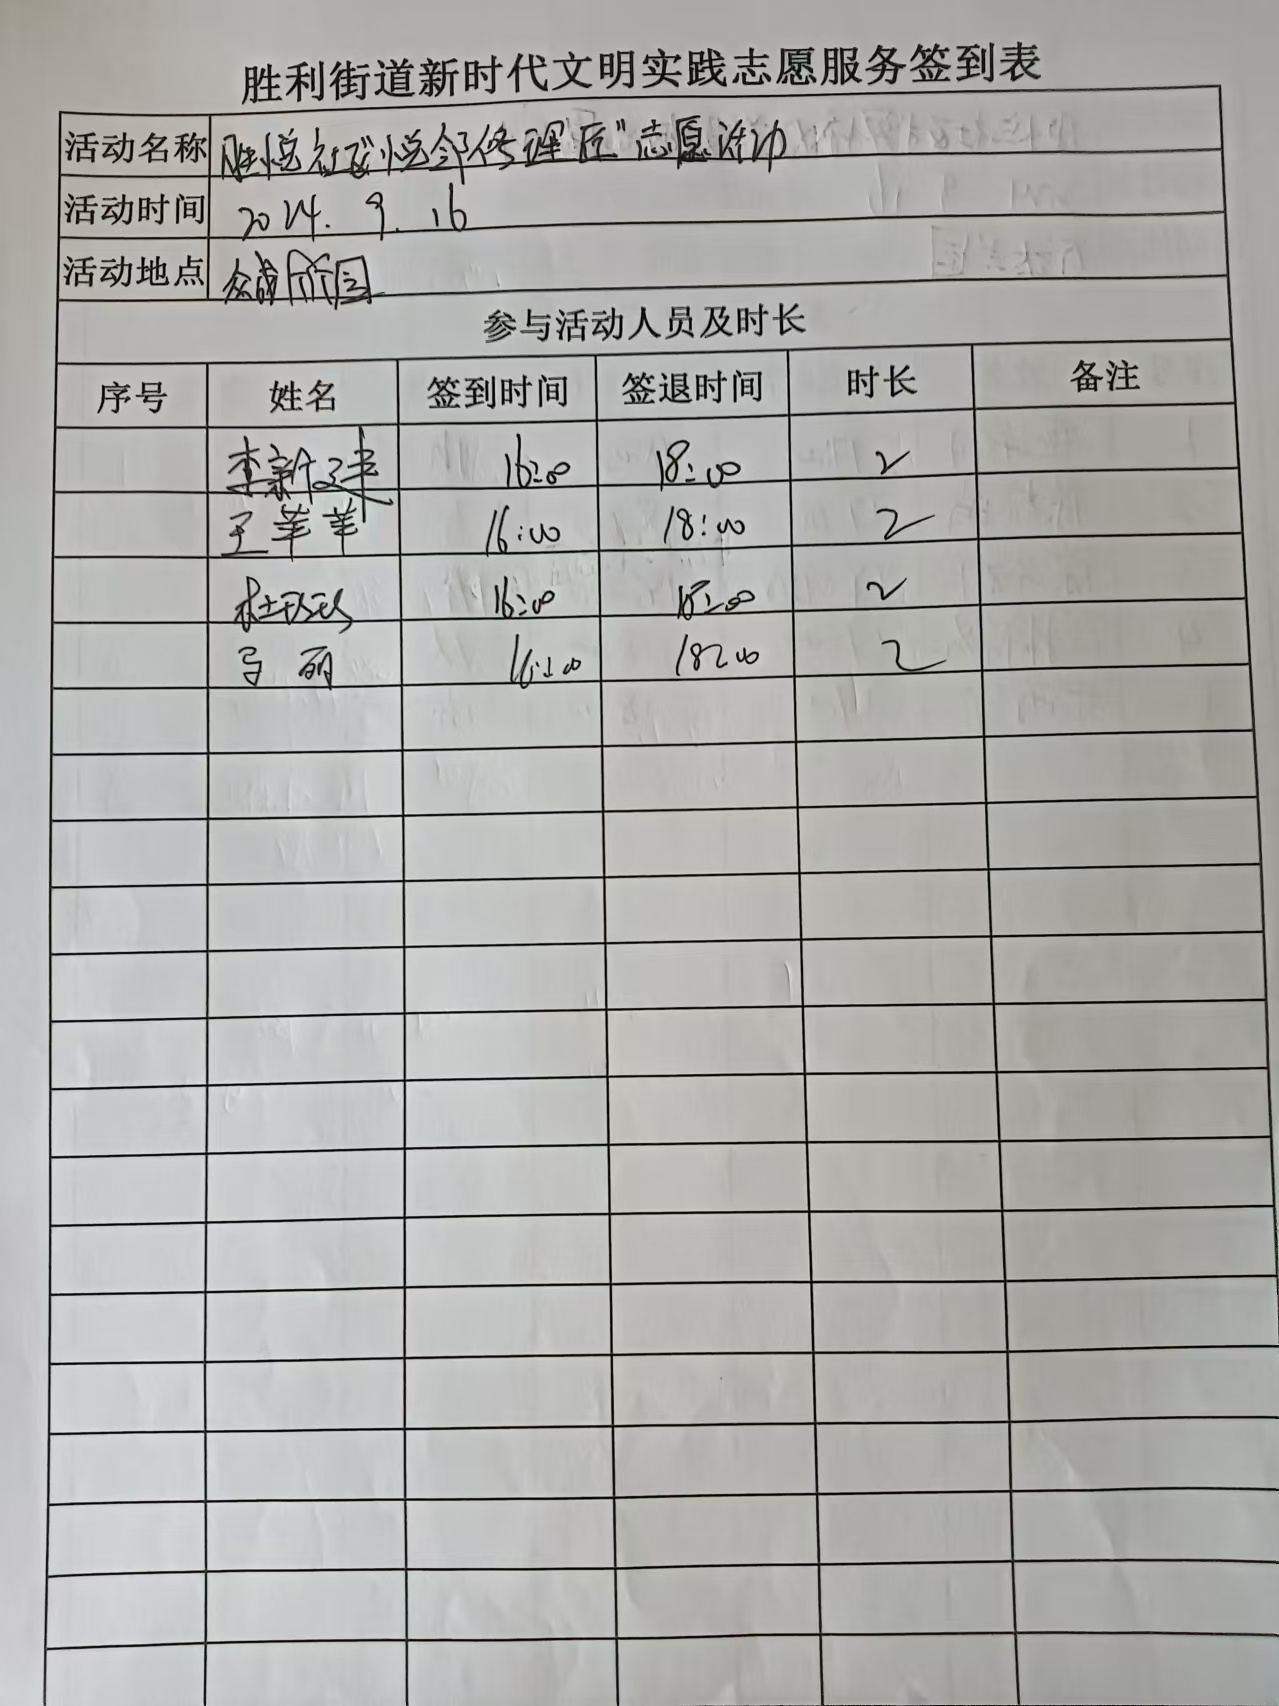 胜利街道新时代文明实践志愿服务签到表
活动名称 胜悦社区"悦邻修理匠"志愿活动
活动时间 2024.9.16
活动地点 众成 园
参与活动人员及时长
序号 姓名 签到时间 签退时间 时长 备注
李新建 16:00 18:00 2
王苹苹 16:00 18:00 2
杜玖玖 16:00 18:00 2
马丽 16:00 18:00 2